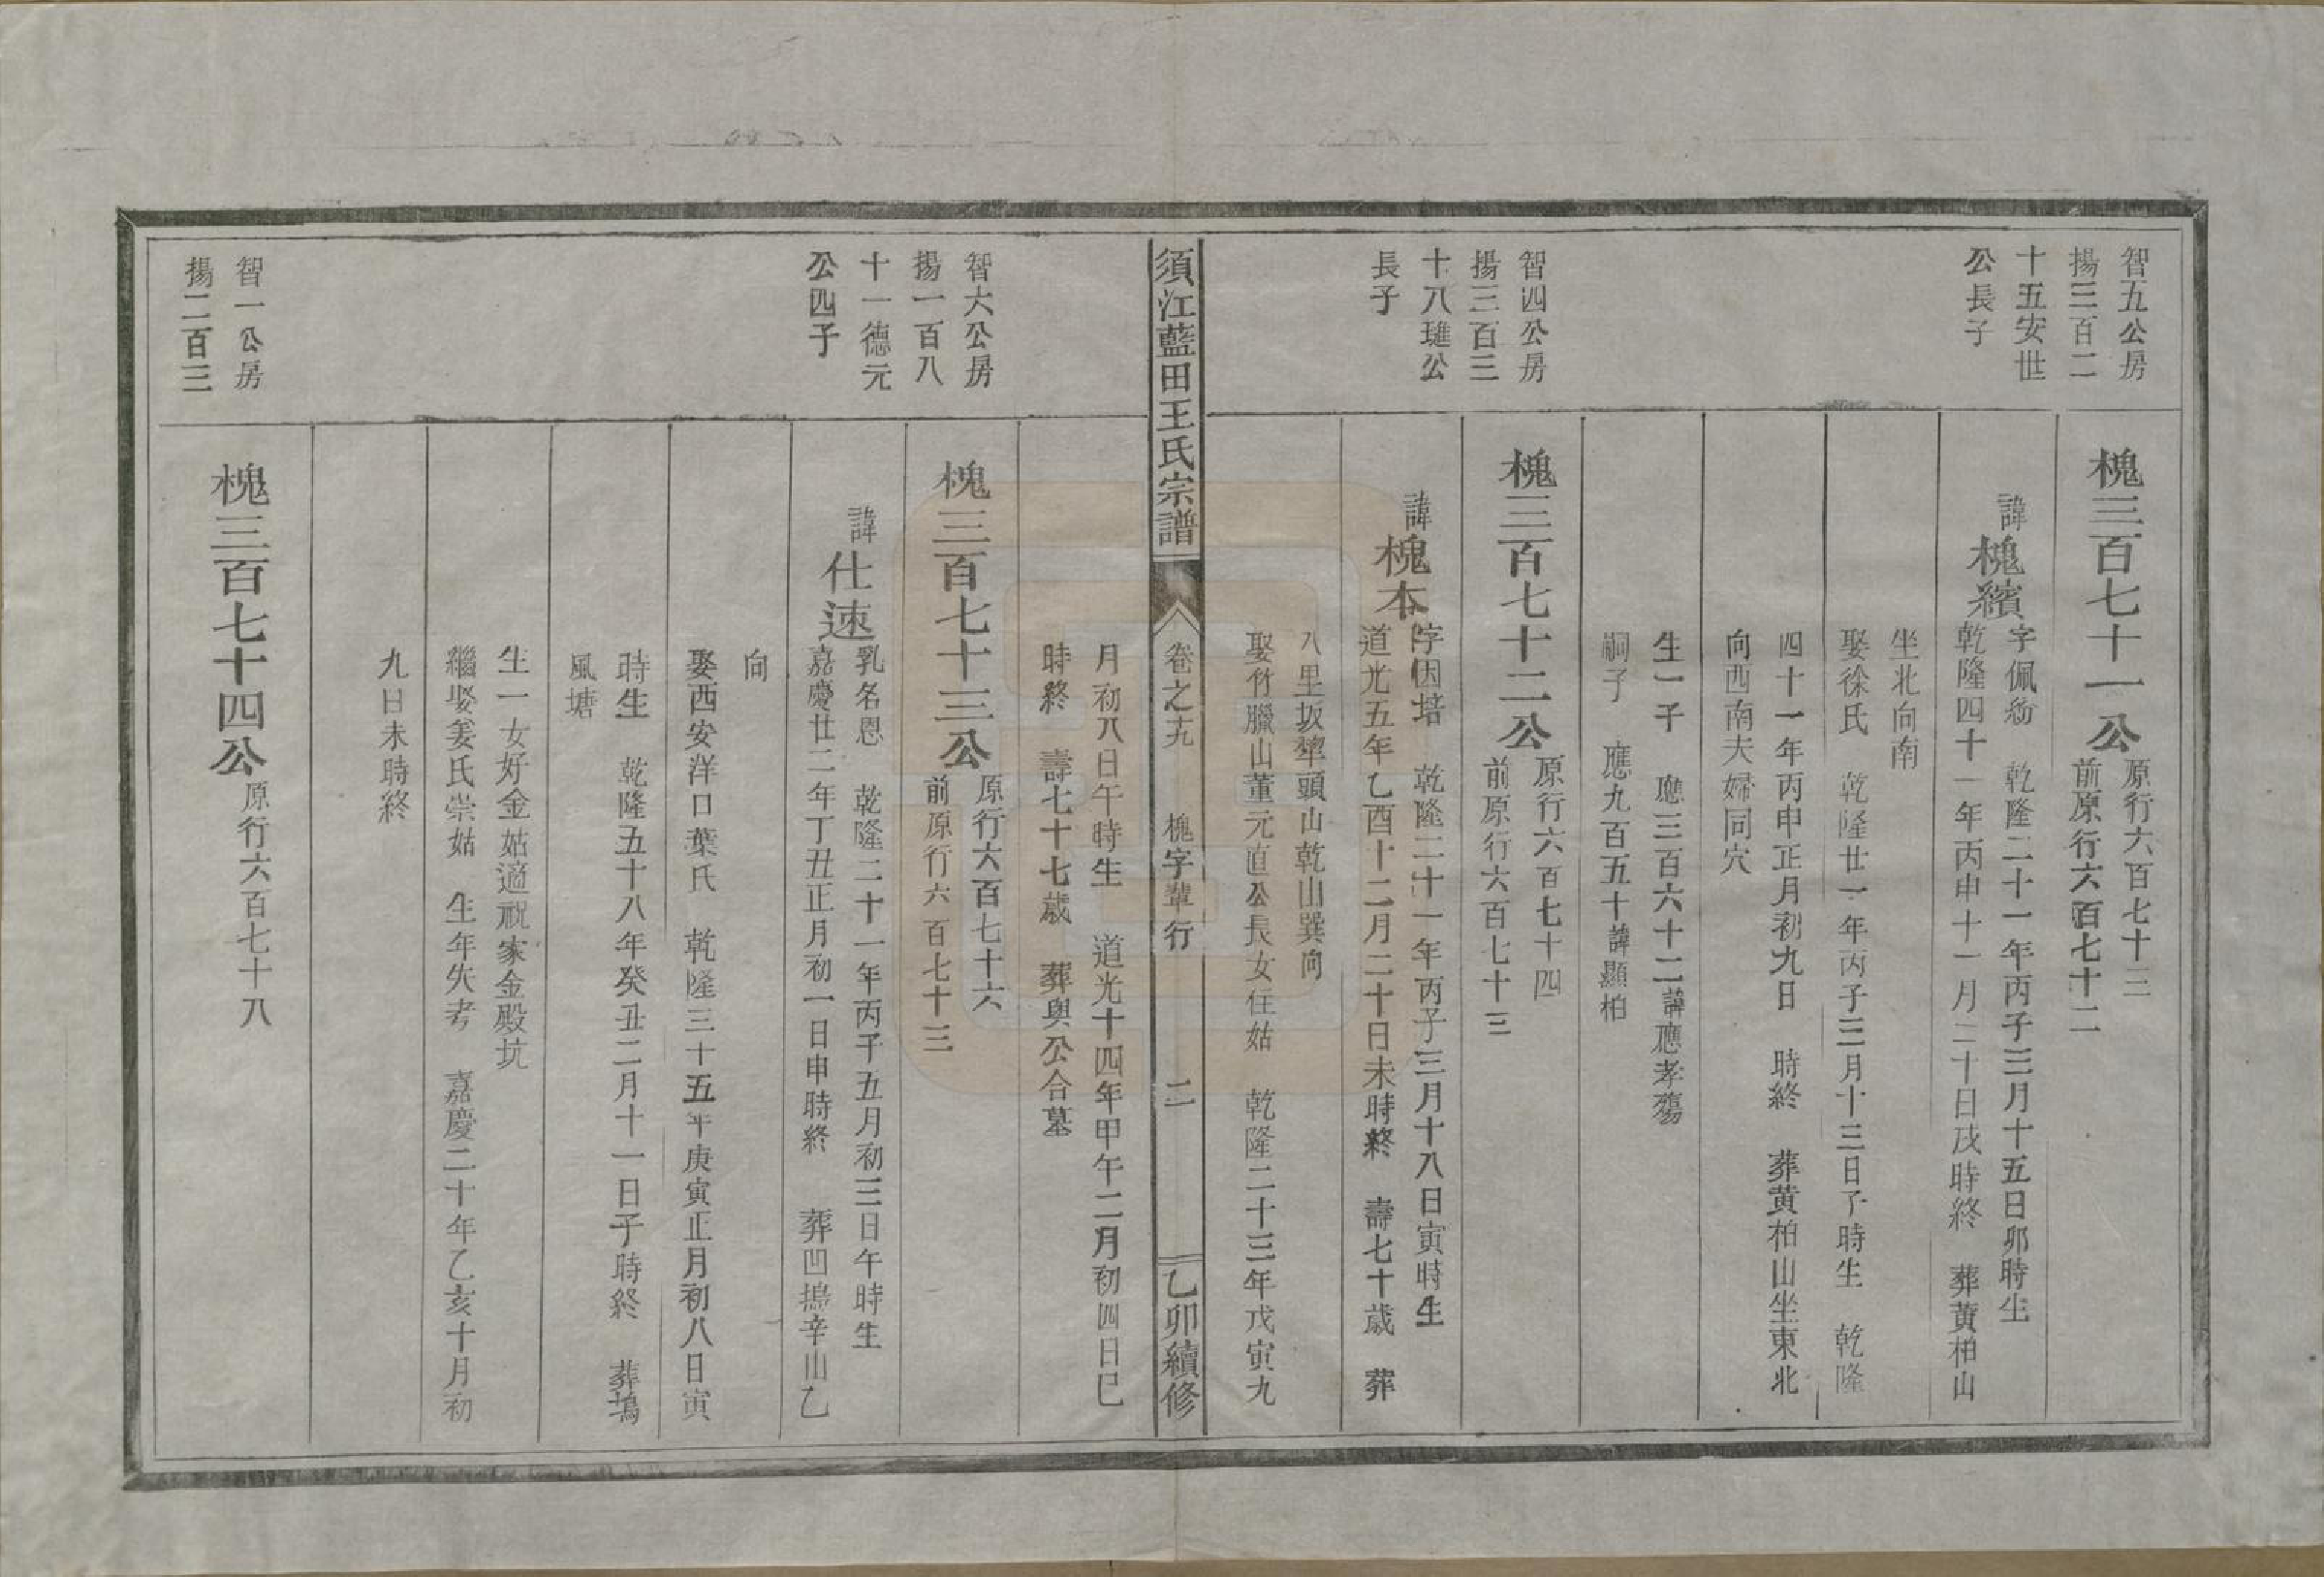 智五公房
揚三百二
十五安世
公長子
槐三百七十一公
原行六百七十三
前原行六百七十二
諱槐繽
字佩紛　乾隆二十一年丙子三月十五日卯時生
乾隆四十一年丙申十一月二十日戌時終　葬黄柏山
坐北向南
娶徐氏　乾隆廿一年丙子三月十三日子時生　乾隆
四十一年丙申正月初九日　時終　葬黄柏山坐東北
向西南夫婦同穴
生一子　應三百六十二諱應孝殤
嗣子　應九百五十諱顯柏
智四公房
揚三百三
十八璡公
長子
槐三百七十二公
原行六百七十四
前原行六百七十三
諱槐本
字因培　乾隆二十一年丙子三月十八日寅時生
道光五年乙酉十二月二十日未時終　壽七十歲　葬
八里坂犂頭山乾山巽向
娶竹臘山董元直公長女任姑　乾隆二十三年戊寅九
須江藍田王氏宗譜
卷之十九　槐字輩行　二
乙卯續修
月初八日午時生　道光十四年甲午二月初四日巳
時終　壽七十七歲　葬與公合墓
智六公房
揚一百八
十一德元
公四子
槐三百七十三公
原行六百七十六
前原行六百七十三
諱仕速
乳名恩　乾隆二十一年丙子五月初三日午時生
嘉慶廿二年丁丑正月初一日申時終　葬凹塢辛山乙
向
娶西安洋口葉氏　乾隆三十五年庚寅正月初八日寅
時生　乾隆五十八年癸丑二月十一日子時終　葬塢
風塘
生一女好金姑適祝家金殿坑
繼娶姜氏崇姑　生年失考　嘉慶二十年乙亥十月初
九日未時終
智一公房
揚二百三
槐三百七十四公
原行六百七十八